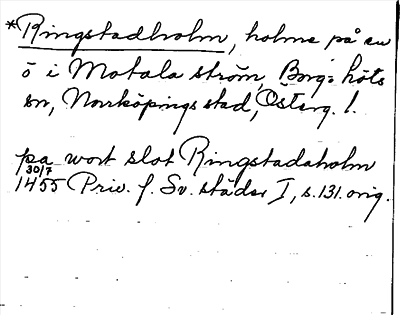 *Ringstadholm, holme på en
ö i Motala ström, Borgs höts
sn, Norrköpings stad, Österg. l.
pa wort slot Ringstadaholm
30/7
1455 Priv. f. Sv. städer I, s. 131. orig.